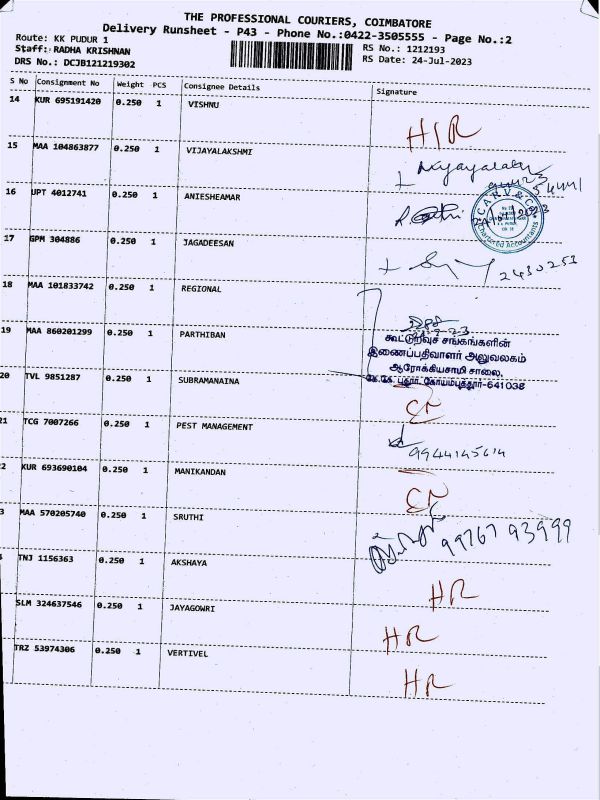 THE PROFESSIONAL COURIERS, COIMBATORE
Delivery Runsheet - P43 - Phone No.:0422-3505555 - Page No.:2
Route: KK PUDUR 1
RS No.: 1212193
Staff: RADHA KRISHNAN
RS Date: 24-Jul-2023
DRS No.: DCJB121219302
S No Consignment No Weight PCS Consignee Details Signature
14 KUR 695191420 0.250 1 VISHNU
HIR
15 MAA 104863877 0.250 1 VIJAYALAKSHMI
16 UPT 4012741 0.250 1 ANIESHEAMAR
Chartered Accountants
17 GPM 304886 0.250 1 JAGADEESAN
2430253
18 MAA 101833742 0.250 1 REGIONAL
19 MAA 860201299 0.250 1 PARTHIBAN
கூட்டுறவுச் சங்கங்களின்
இணைப்பதிவாளர் அலுவலகம்
ஆரோக்கியசாமி சாலை,
கே.கே. புதூர், கோயம்புத்தூர்-641038
20 TVL 9851287 0.250 1 SUBRAMANAINA
21 TCG 7007266 0.250 1 PEST MANAGEMENT
9944145614
2 KUR 693690104 0.250 1 MANIKANDAN
3 MAA 570205740 0.250 1 SRUTHI
99767 93999
TNJ 1156363 0.250 1 AKSHAYA
HR
SLM 324637546 0.250 1 JAYAGOWRI
HR
TRZ 53974306 0.250 1 VERTIVEL
HR